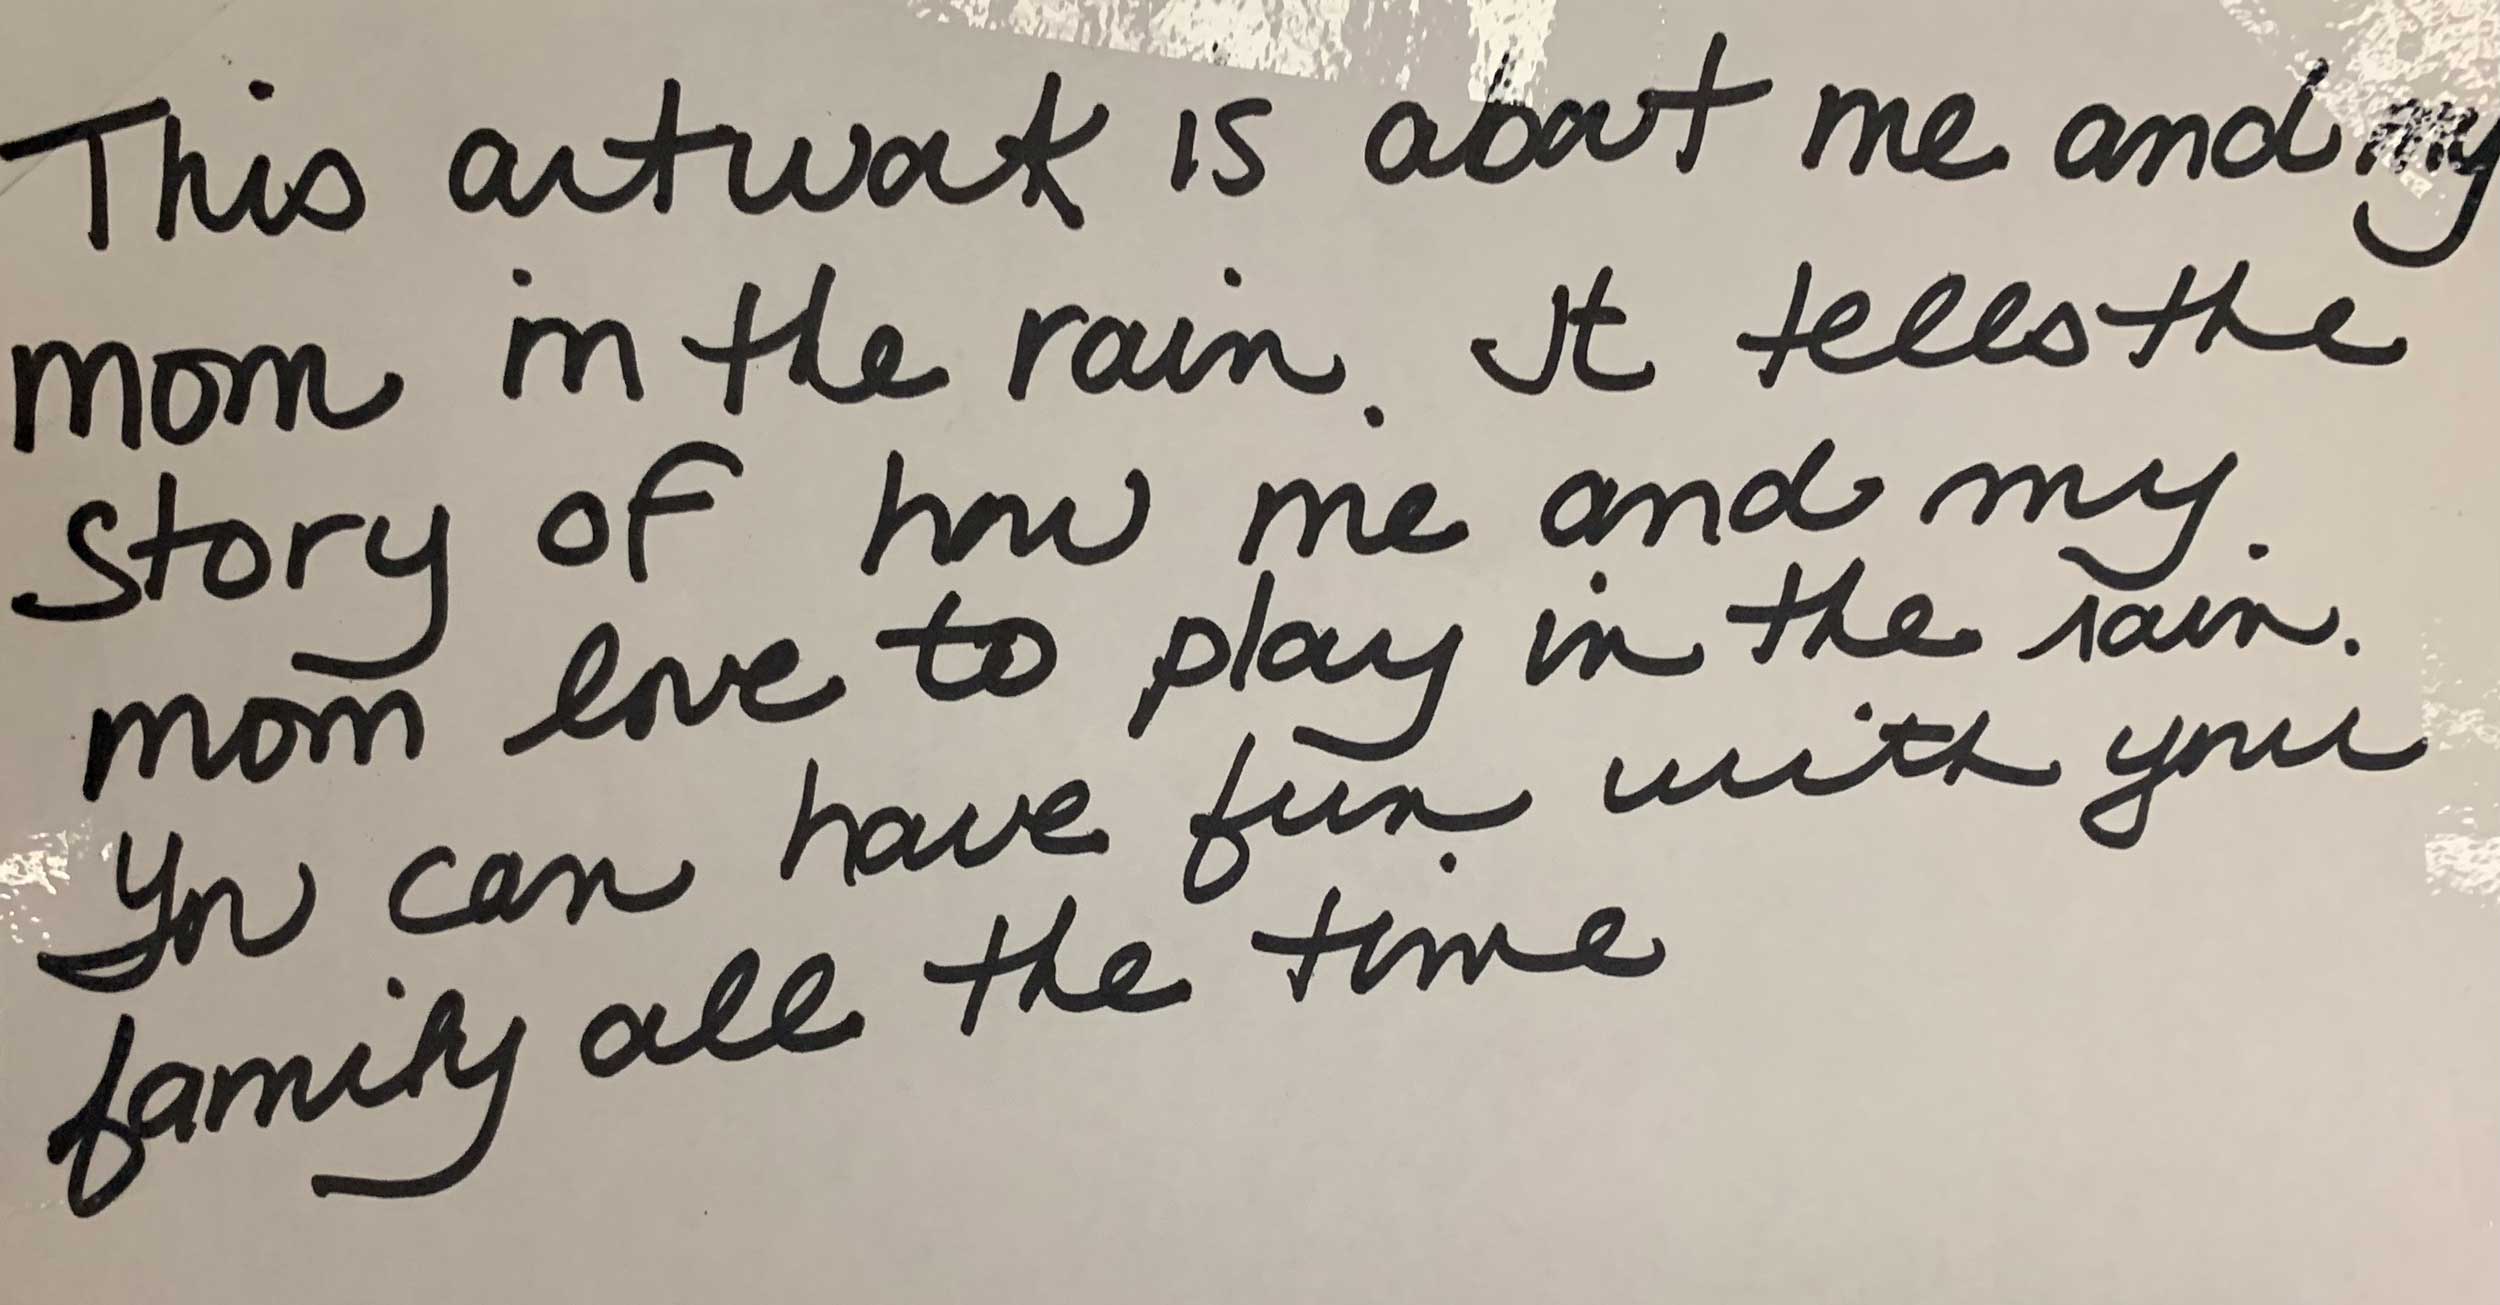 This artwork is about me and my
mom in the rain. It tells the
story of how me and my
mom love to play in the rain.
You can have fun with your
family all the time